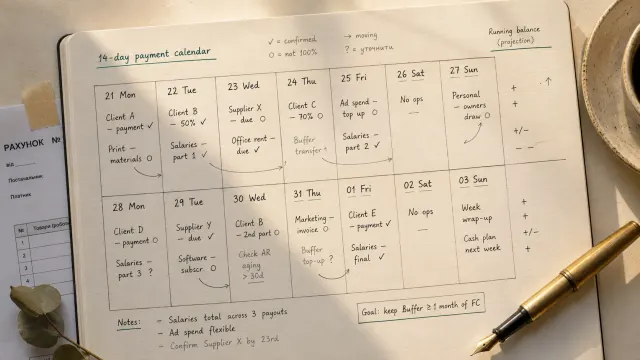 14-day payment calendar
✓ = confirmed
→ = moving
○ = not 100%
? = уточнити
Running balance
(projection)
21 Mon
Client A
– payment ✓
Print –
materials ○
22 Tue
Client B
– 50% ✓
Salaries –
part 1 ✓
23 Wed
Supplier X
– due ○
Office rent –
due ✓
24 Thu
Client C
– 70% ○
Buffer
transfer
25 Fri
Ad spend –
top up ○
Salaries –
part 2 ✓
26 Sat
No ops
—
27 Sun
Personal
– owners
draw ○
+
+
+/-
– –
↑
28 Mon
Client D
– payment ○
Salaries –
part 3 ?
29 Tue
Supplier Y
– due ✓
Software –
subscr. ○
30 Wed
Client B
– 2nd part ○
Check AR
aging
> 30d
31 Thu
Marketing –
invoice ○
Buffer
top-up ?
01 Fri
Client E
– payment ✓
Salaries –
final ✓
02 Sat
No ops
—
03 Sun
Week
wrap-up
Cash plan
next week
+
+
+/-
+
Notes:
– Salaries total across 3 payouts
– Ad spend flexible
– Confirm Supplier X by 23rd
Goal: keep Buffer ≥ 1 month of FC
РАХУНОК №
від
Постачальник
Платник
№
1
2
3
4